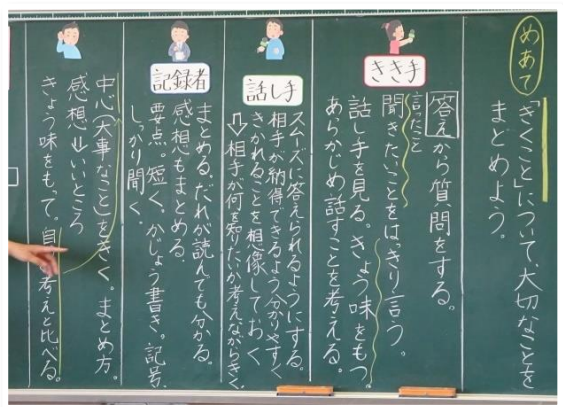 めあて
「きくこと」について、大切なことを
まとめよう。
きき手
答えから質問をする。
言ったこと
聞きたいことをはっきり言う。
話し手を見る。きょう味をもつ。
あらかじめ話すことを考える。
話し手
スムーズに答えられるようにする。
相手が納得できるよう分かりやすく
きかれることを想像しておく
⇩相手が何を知りたいか考えながらきく。
記録者
まとめる。だれが読んでも分かる。
感想もまとめる。
要点。短く。かじょう書き。記号。
しっかり聞く
中心(大事なこと)をきく。まとめ方。
感想⇩いいところ
きょう味をもって。自 考えと比べる。